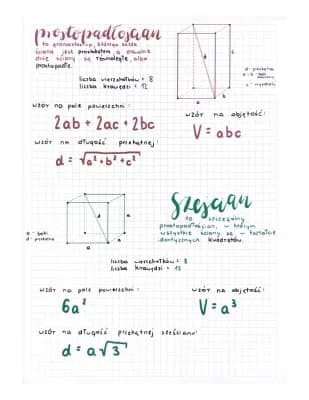 prostopadłościan
to graniastosłup, którego każda
ściana jest prostokątem a dowolne
dwie ściany są równoległe albo
prostopadłe.
liczba wierzchołków = 8
liczba krawędzi = 12
c
b
a
d - przekątna
a i b - boki
c - wysokość
wzór na pole powierzchni:
2ab + 2ac + 2bc
wzór na objętość:
V = abc
wzór na długość przekątnej:
d = √a² + b² + c²
a - boki
d - przekątna
d
a
a
a
Sześcian
to szczególny
prostopadłościan, w którym
wszystkie ściany są w kształcie
identycznych kwadratów.
liczba wierzchołków = 8
liczba krawędzi = 12
wzór na pole powierzchni:
6a²
wzór na objętość:
V = a³
wzór na długość przekątnej sześcianu:
d = a√3